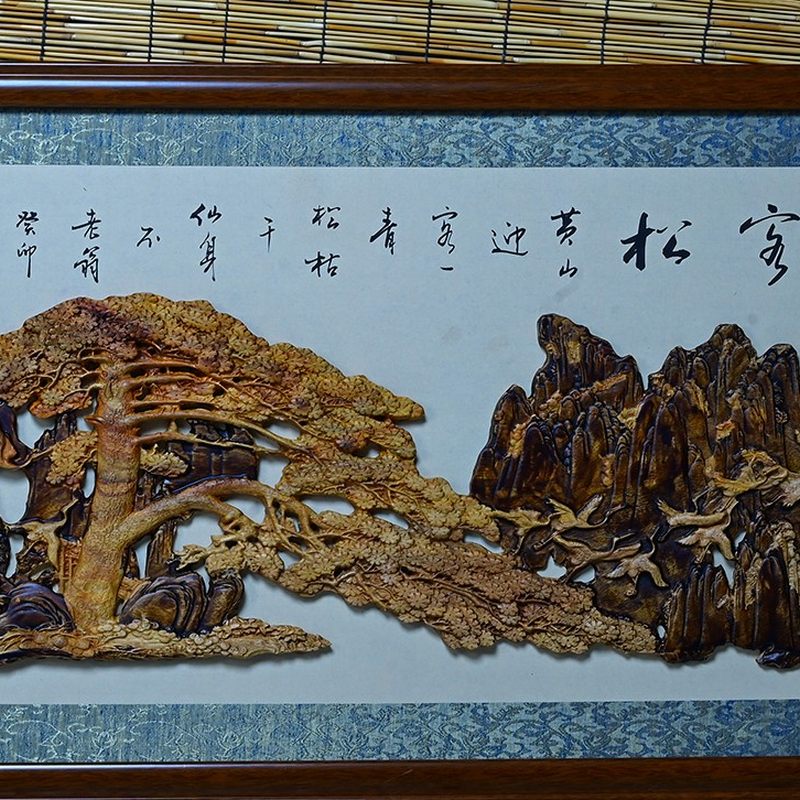 客松
黄山
迎
客一
青
松枯
干
仙身
不
老翁
癸卯